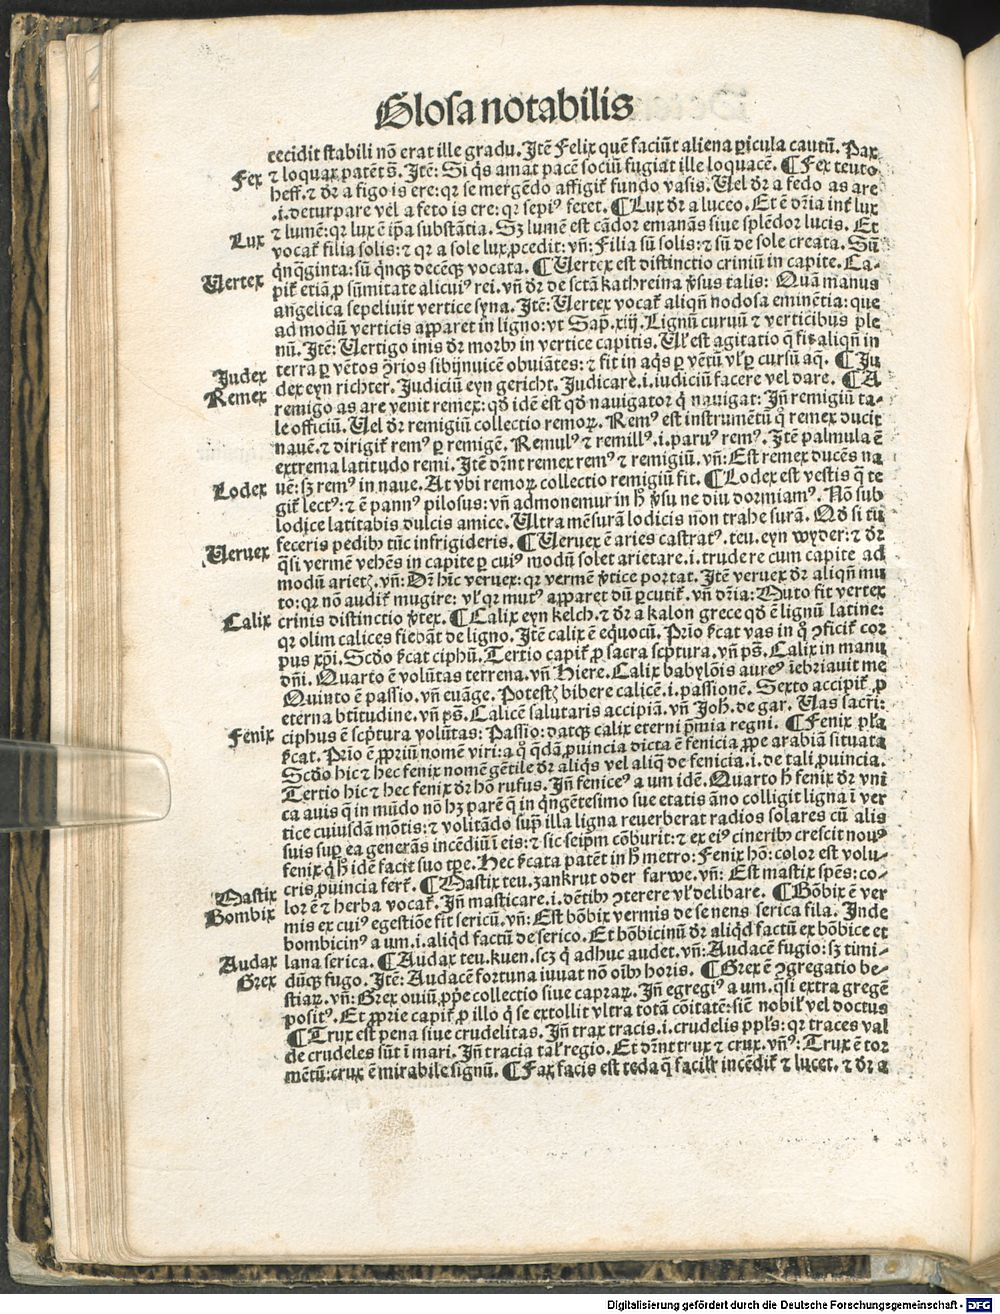 Glosa notabilis
cecidit stabili nō erat ille gradu. Itē Felix quē faciūt aliena ꝑicula cautū. Pax
Fex
⁊ loquax patēt s̄. Itē: Si q̇s amat pacē sociū fugiat ille loquacē. ¶ Fex teuto
heff. ⁊ dr̄ a figo is ere: qꝛ se mergēdo affigit̄ fundo vasis. Uel dr̄ a fedo as are
.i. deturpare vel a feto is ere: qꝛ sepiꝰ fetet. ¶ Lux dr̄ a luceo. Et ē dr̄ia int̄ lux
Lux
⁊ lumē: qꝛ lux ē ip̄a substātia. Sꝫ lumē est cādor emanās siue splēdor lucis. Et
vocat̄ filia solis: ⁊ qꝛ a sole lux ꝓcedit: vn̄: Filia sū solis: ⁊ sū de sole creata. Sū
q̇nq̇ginta: sū q̇nqꝫ decēqꝫ vocata. ¶ Uertex est distinctio criniū in capite. Ca-
Uertex
pit̄ etiā ꝓ sūmitate alicuiꝰ rei. vn̄ dr̄ de sctā kathreina v̄sus talis: Quā manus
angelica sepeliuit vertice syna. Itē: Uertex vocat̄ aliqn̄ nodosa eminētia: que
ad modū verticis apparet in ligno: vt Sap. xiij. Lignū curuū ⁊ verticibus ple
nū. Itē: Uertigo inis dr̄ morbꝰ in vertice capitis. Ul̄ est agitatio q̄ fit aliqn̄ in
terra ꝑ vētos ꝯrios sibijnuicē obuiātes: ⁊ fit in aq̇s ꝑ vētū vl̄ ꝑ cursū aq̄. ¶ Ju
Judex
dex eyn richter. Judiciū eyn gericht. Judicare .i. iudiciū facere vel dare. ¶ A
Remex
remigo as are venit remex: qd̄ idē est qd̄ nauigator q̇ nauigat: Jn̄ remigiū ta-
le officiū. Uel dr̄ remigiū collectio remoꝝ. Remꝰ est instrumētū q̇ remex ducit
nauē. ⁊ dirigit̄ remꝰ ꝑ remigē. Remulꝰ ⁊ remillꝰ .i. paruꝰ remꝰ. Itē palmula ē
extrema latitudo remi. Itē dr̄nt remex remꝰ ⁊ remigiū. vn̄: Est remex ducēs na
uē: sꝫ remꝰ in naue. At vbi remoꝝ collectio remigiū fit. ¶ Lodex est vestis q̄ te
Lodex
git̄ lectꝰ: ⁊ ē pannꝰ pilosus: vn̄ admonemur in h̄ v̄su ne diu dormiamꝰ. Nō sub
lodice latitabis dulcis amice. Ultra mēsurā lodicis non trahe surā. Qd̄ si tū
feceris pedibꝰ tūc infrigideris. ¶ Ueruex ē aries castratꝰ. teu. eyn wyder: ⁊ dr̄
Ueruex
q̄si vermē vehēs in capite ꝑ cuiꝰ modū solet arietare .i. trudere cum capite ad
modū arietꝭ. vn̄: Dr̄ hīc veruex: qꝛ vermē v̄tice portat. Itē veruex dr̄ aliqn̄ mu
to: qꝛ nō audit̄ mugire: vl̄ qꝛ mutꝰ apparet dū ꝑcutit̄. vn̄ dr̄ia: Muto fit vertex
crinis distinctio v̄tex. ¶ Calix eyn kelch. ⁊ dr̄ a kalon grece qd̄ ē lignū latine:
Calix
qꝛ olim calices fiebāt de ligno. Itē calix ē equocū. Prio s̄cat vas in q̇ ꝯficit̄ cor
pus xp̄i. Scd̄o s̄cat ciphū. Tertio capit̄ ꝓ sacra scp̄tura. vn̄ ps̄. Calix in manu
dn̄i. Quarto ē volūtas terrena. vn̄ Hiere. Calix babylōis aureꝰ īebriauit me
Quinto ē passio. vn̄ euāge. Potestꝭ bibere calicē .i. passionē. Sexto accipit̄ ꝓ
eterna btītudine. vn̄ ps̄. Calicē salutaris accipiā. vn̄ Joh̄. de gar. Uas sacri:
ciphus ē scp̄tura volūtas: Passio: datqꝫ calix eterni p̄mia regni. ¶ Fenix pl̄a
Fenix
s̄cat. Prio ē ꝓpriū nomē viri: a q̇ q̇dā ꝓuincia dicta ē fenicia ꝓpe arabiā situata
Scd̄o hic ⁊ hec fenix nomē gētile dr̄ aliq̇s vel aliq̄ de fenicia .i. de tali ꝓuincia.
Tertio hic ⁊ hec fenix dr̄ hō rufus. Jn̄ feniceꝰ a um idē. Quarto h̄ fenix dr̄ vni
ca auis q̄ in mūdo nō hꝫ parē q̄ in q̇ngētesimo sue etatis āno colligit ligna ī ver
tice cuiusdā mōtis: ⁊ volitādo sup̄ illa ligna reuerberat radios solares cū alis
suis sup̄ ea generās incēdiū ī eis: ⁊ sic seipm̄ cōburit: ⁊ ex eiꝰ cineribꝰ crescit nouꝰ
fenix q̇ h̄ idē facit suo tꝑe. Hec s̄cata patēt in h̄ metro: Fenix hō: color est volu-
cris ꝓuincia fert̄. ¶ Mastix teu. zankrut oder farwe. vn̄: Est mastix spēs: co-
Mastix
lor ē ⁊ herba vocat̄. Jn̄ masticare .i. dētibꝰ ꝯterere vl̄ delibare. ¶ Bōbix ē ver
Bombix
mis ex cuiꝰ egestiōe fit sericū. vn̄: Est bōbix vermis de se nens serica fila. Inde
bombicinꝰ a um .i. aliq̇d factū de serico. Et bōbicinū dr̄ aliq̇d factū ex bōbice et
lana serica. ¶ Audax teu. kuen. scꝫ q̇ adhuc audet. vn̄: Audacē fugio: sꝫ timi-
Audax
dūqꝫ fugo. Itē: Audacē fortuna iuuat nō oībꝰ horis. ¶ Grex ē ꝯgregatio be-
Grex
stiaꝝ. vn̄: Grex ouiū ꝓp̄e collectio siue capraꝝ. Jn̄ egregiꝰ a um. q̄si extra gregē
positꝰ. Et ꝓprie capit̄ ꝓ illo q̇ se extollit vltra totā cōitatē: sic̄ nobil̄ vel doctus
¶ Trux est pena siue crudelitas. Jn̄ trax tracis .i. crudelis ppl̄s: qꝛ traces val
de crudeles sūt ī mari. Jn̄ tracia tal̄ regio. Et dr̄nt trux ⁊ crux. vn̄ꝰ: Trux ē tor
mētū: crux ē mirabile signū. ¶ Fax facis est teda q̄ facilr̄ incēdit̄ ⁊ lucet. ⁊ dr̄ a
Digitalisierung gefördert durch die Deutsche Forschungsgemeinschaft - DFG